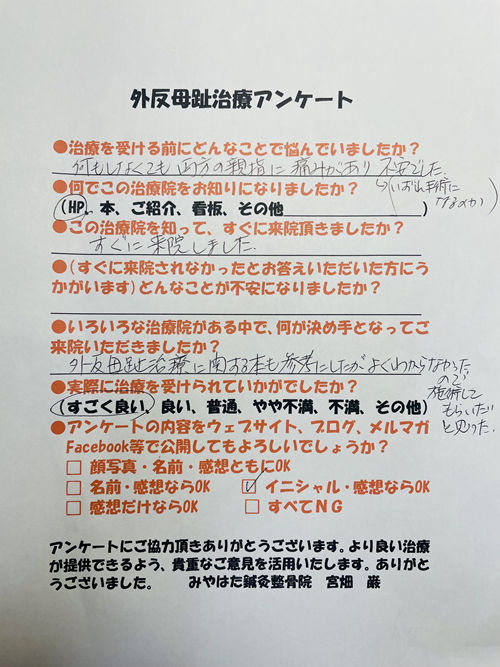 外反母趾治療アンケート
●治療を受ける前にどんなことで悩んでいましたか?
何もしなくても両方の親指に痛みがあり不安でした。
いずれ手術になるのか)
●何でこの治療院をお知りになりましたか?
(HP、本、ご紹介、看板、その他 )
●この治療院を知って、すぐに来院頂きましたか?
すぐに来院しました。
●(すぐに来院されなかったとお答えいただいた方にう
かがいます)どんなことが不安になりましたか?
●いろいろな治療院がある中で、何が決め手となってご
来院いただきましたか?
外反母趾治療に関する本も参考にしたがよくわからなかった
ので
施術して
もらいたい
と思った。
●実際に治療を受けられていかがでしたか?
(すごく良い、良い、普通、やや不満、不満、その他)
●アンケートの内容をウェブサイト、ブログ、メルマガ
Facebook等で公開してもよろしいでしょうか?
□ 顔写真・名前・感想ともにOK
□ 名前・感想ならOK ☑ イニシャル・感想ならOK
□ 感想だけならOK □ すべてNG
アンケートにご協力頂きありがとうございます。より良い治療
が提供できるよう、貴重なご意見を活用いたします。ありがと
うございました。 みやはた鍼灸整骨院 宮畑 巌